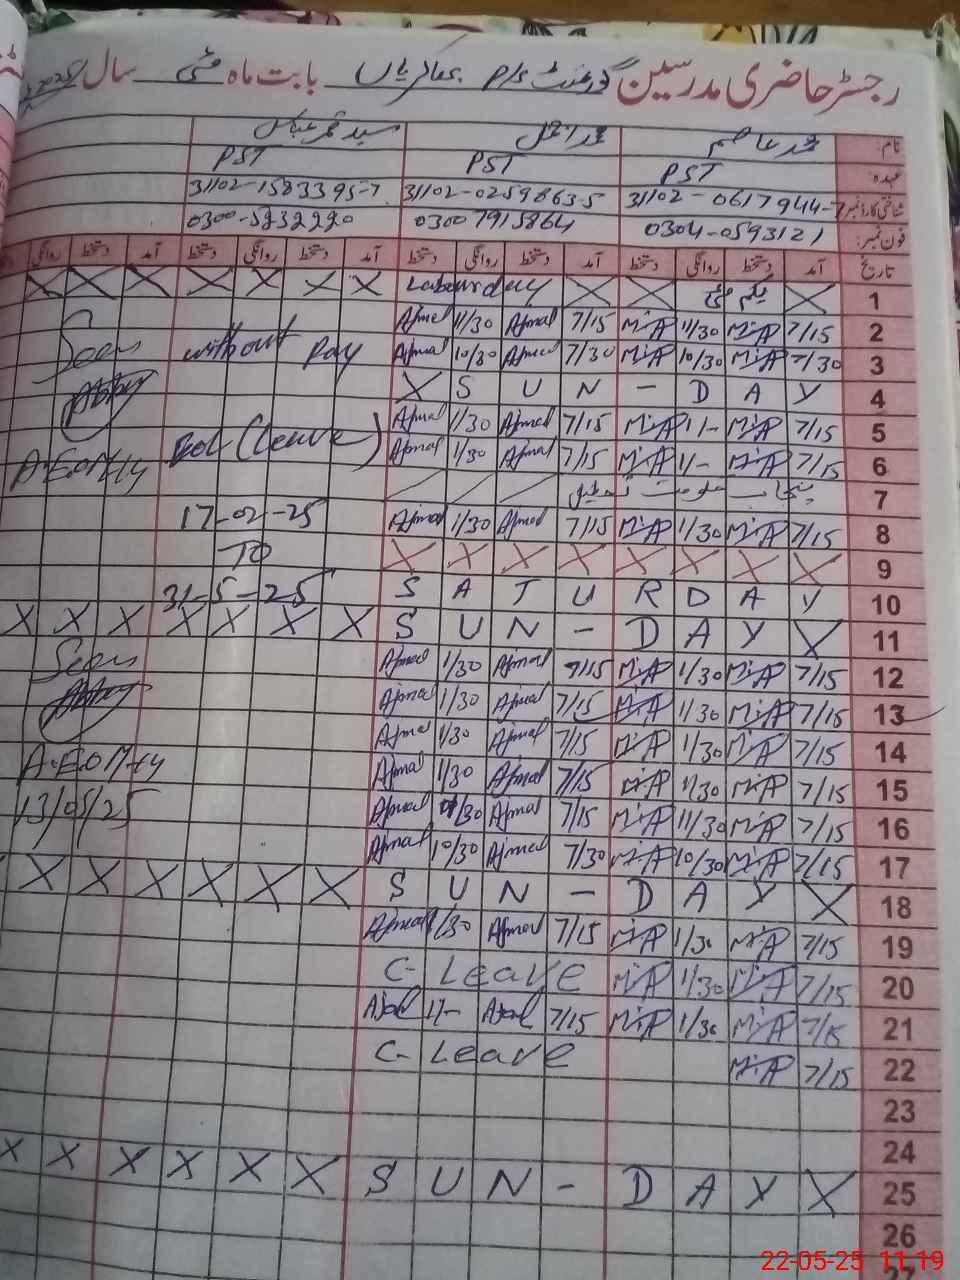 رجسٹر حاضری مدرسین گورنمنٹ P/S بھاکریاں بابت ماہ مئی سال 2025
نام: محمد عاصم محمد اجمل سید قمر عباس
عہدہ: PST PST PST
شناختی کارڈ نمبر 31102-0617944-7 31102-0259863-5 31102-1583395-7
فون نمبر: 0304-0593121 03007915864 0300-5232220
تاریخ آمد دستخط روانگی دستخط آمد دستخط روانگی دستخط آمد دستخط روانگی دستخط آمد دستخط روانگی
1 X یکم مئی X X Labour day X X X X X X X
2 7/15 M.A 11/30 M.A 7/15 Ajmal 11/30 Ajmal
3 7/30 M.A 10/30 M.A 7/30 Ajmal 10/30 Ajmal without Pay Seen
4 X S U N - D A Y
5 7/15 M.A 1/- M.A 7/15 Ajmal 1/30 Ajmal
6 7/15 M.A 1/- M.A 7/15 Ajmal 1/30 Ajmal (Leave) A.EO M-ty
7 پنجاب حکومت تعطیل
8 7/15 M.A 1/30 M.A 7/15 Ajmal 1/30 Ajmal 17-02-25
9 X X X X X X X X TO
10 S A T U R D A Y 31-5-25
11 S U N - D A Y X X X X X X X X
12 7/15 M.A 1/30 M.A 7/15 Ajmal 1/30 Ajmal Seen
13 7/15 M.A 1/30 M.A 7/15 Ajmal 1/30 Ajmal
14 7/15 M.A 1/30 M.A 7/15 Ajmal 1/30 Ajmal
15 7/15 M.A 1/30 M.A 7/15 Ajmal 1/30 Ajmal A.EO M-ty
16 7/15 M.A 11/30 M.A 7/15 Ajmal /30 Ajmal 13/05/25
17 7/15 M.A 10/30 M.A 7/30 Ajmal 10/30 Ajmal
18 S U N - D A Y X X X X X X X
19 7/15 M.A 1/30 M.A 7/15 Ajmal 1/30 Ajmal
20 7/15 M.A 1/30 M.A C-Leave
21 7/15 M.A 1/30 M.A 7/15 Ajmal 1/- Ajmal
22 7/15 M.A C-Leave
23
24
25 S U N - D A Y X X X X X X X
26
27
22-05-25 11:19